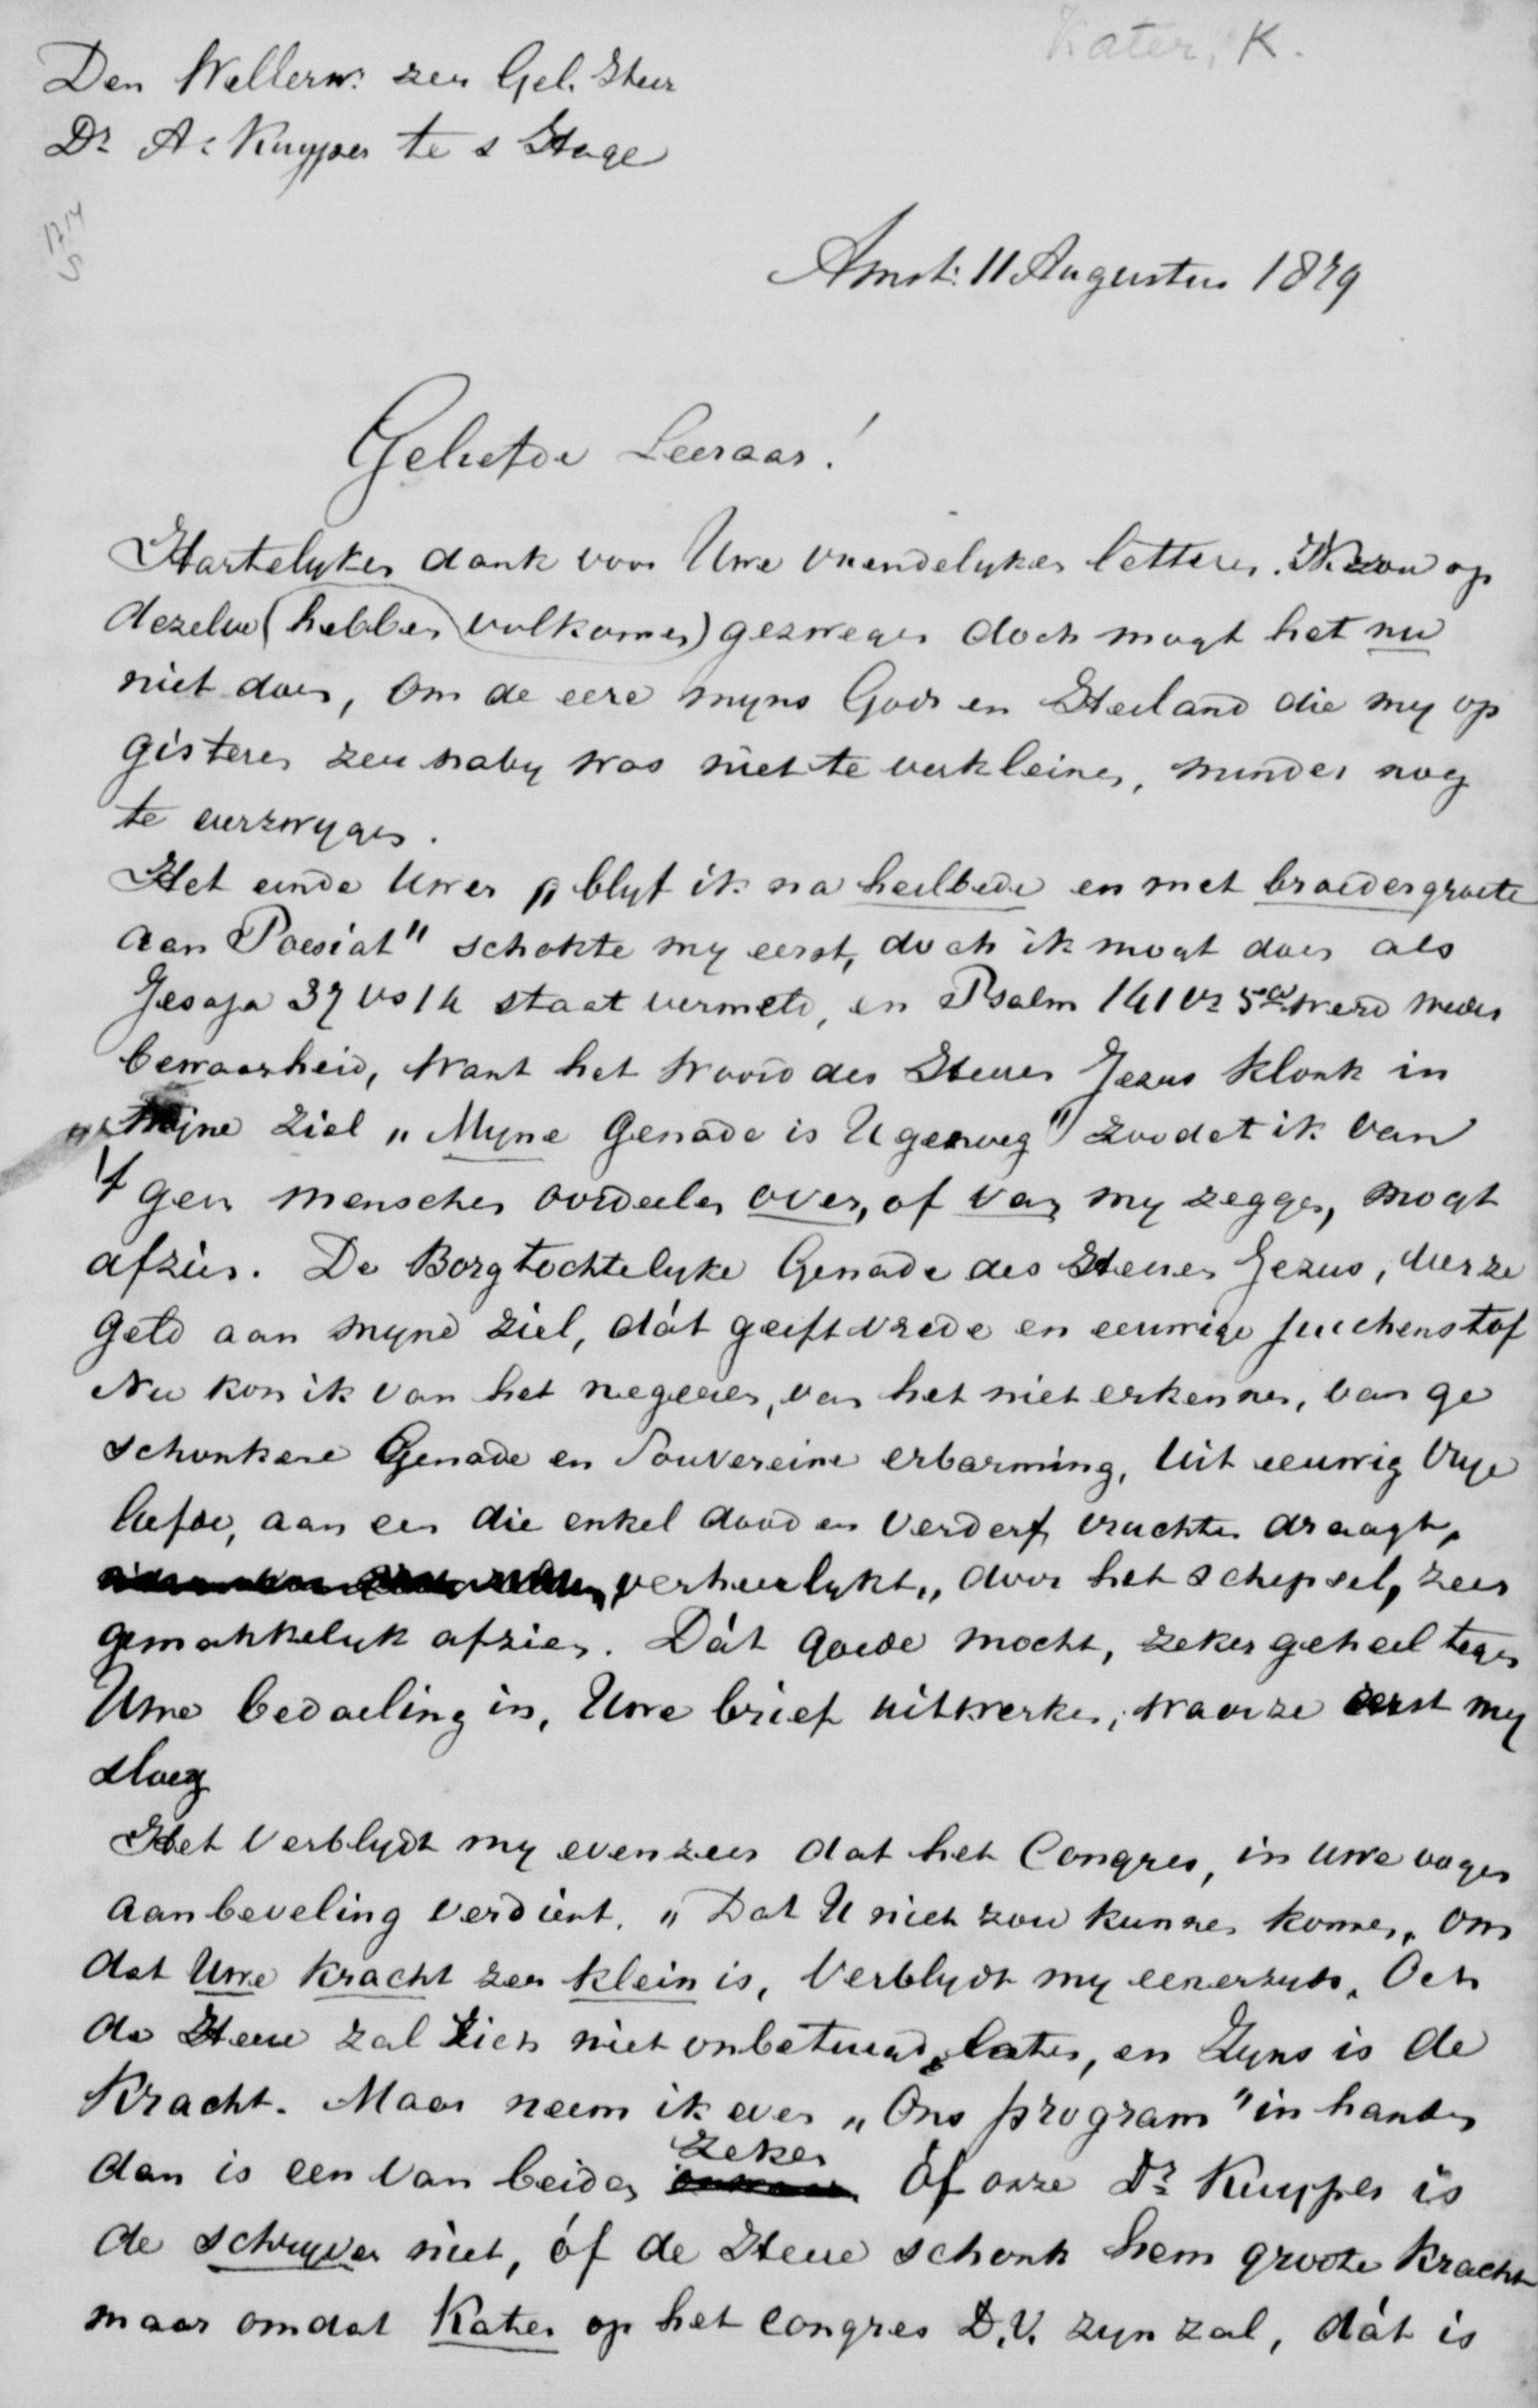 Kater, K.
Den Wellerw: zeer Gel. Heer
Dr A. Kuyper te s Hage
Amst: 11 Augustus 1879
Geliefde Leeraar!
Hartelyken dank voor Uwe vriendelyke letteren. Ik zou op
dezelve (hebben volkomen) gezwegen doch mogt het nu
niet doen, om de eere myns Gods en Heiland die my op
gisteren zeer naby was niet te verkleinen, minder nog
te verzwygen.
Het einde Uwer „blyf ik na heilbede en met broedergroete
aan Poesiat" schokte my eerst, doch ik mogt doen als
Jesaja 37 vs 14 staat vermeld, en Psalm 141 vs 5a werd weder
bewaarheid, want het woord des Heeren Jezus klonk in
myne ziel „Myne Genade is U genoeg" zoodat ik van
't geen menschen oordeelen over, of van my zeggen, mogt
afzien. De Borgtochtelyke Genade des Heeren Jezus, verze
geld aan myne ziel, dát geeft vrede en eeuwige juichenstof
Nu kon ik van het negeeren, van het niet erkennen, van ge
schonkene Genade en Souvereine erbarming, uit eeuwig vrye
liefde, aan een die enkel dood en verderf vruchten draagt,
verheerlykt,, door het schepsel, zeer
gemakkelyk afzien. Dát goede mocht, zeker geheel tegen
Uwe bedoeling in, Uwe brief uitwerken, waar ze eerst my
sloeg
Het verblydt my evenzeer dat het Congres, in uwe oogen
aanbeveling verdient. „Dat U niet zou kunnen komen, om
dat Uwe kracht zeer klein is, verblydt my eenerzyds. Och
de Heere zal Zich niet onbetuigd laten, en Zyns is de
Kracht. Maar neem ik even „Ons program" in handen
dan is een van beiden zeker óf onze Dr Kuyper is
de schryver niet, óf de Heere schonk hem groote kracht
maar omdat Kater op het congres D.V. zyn zal, dát is